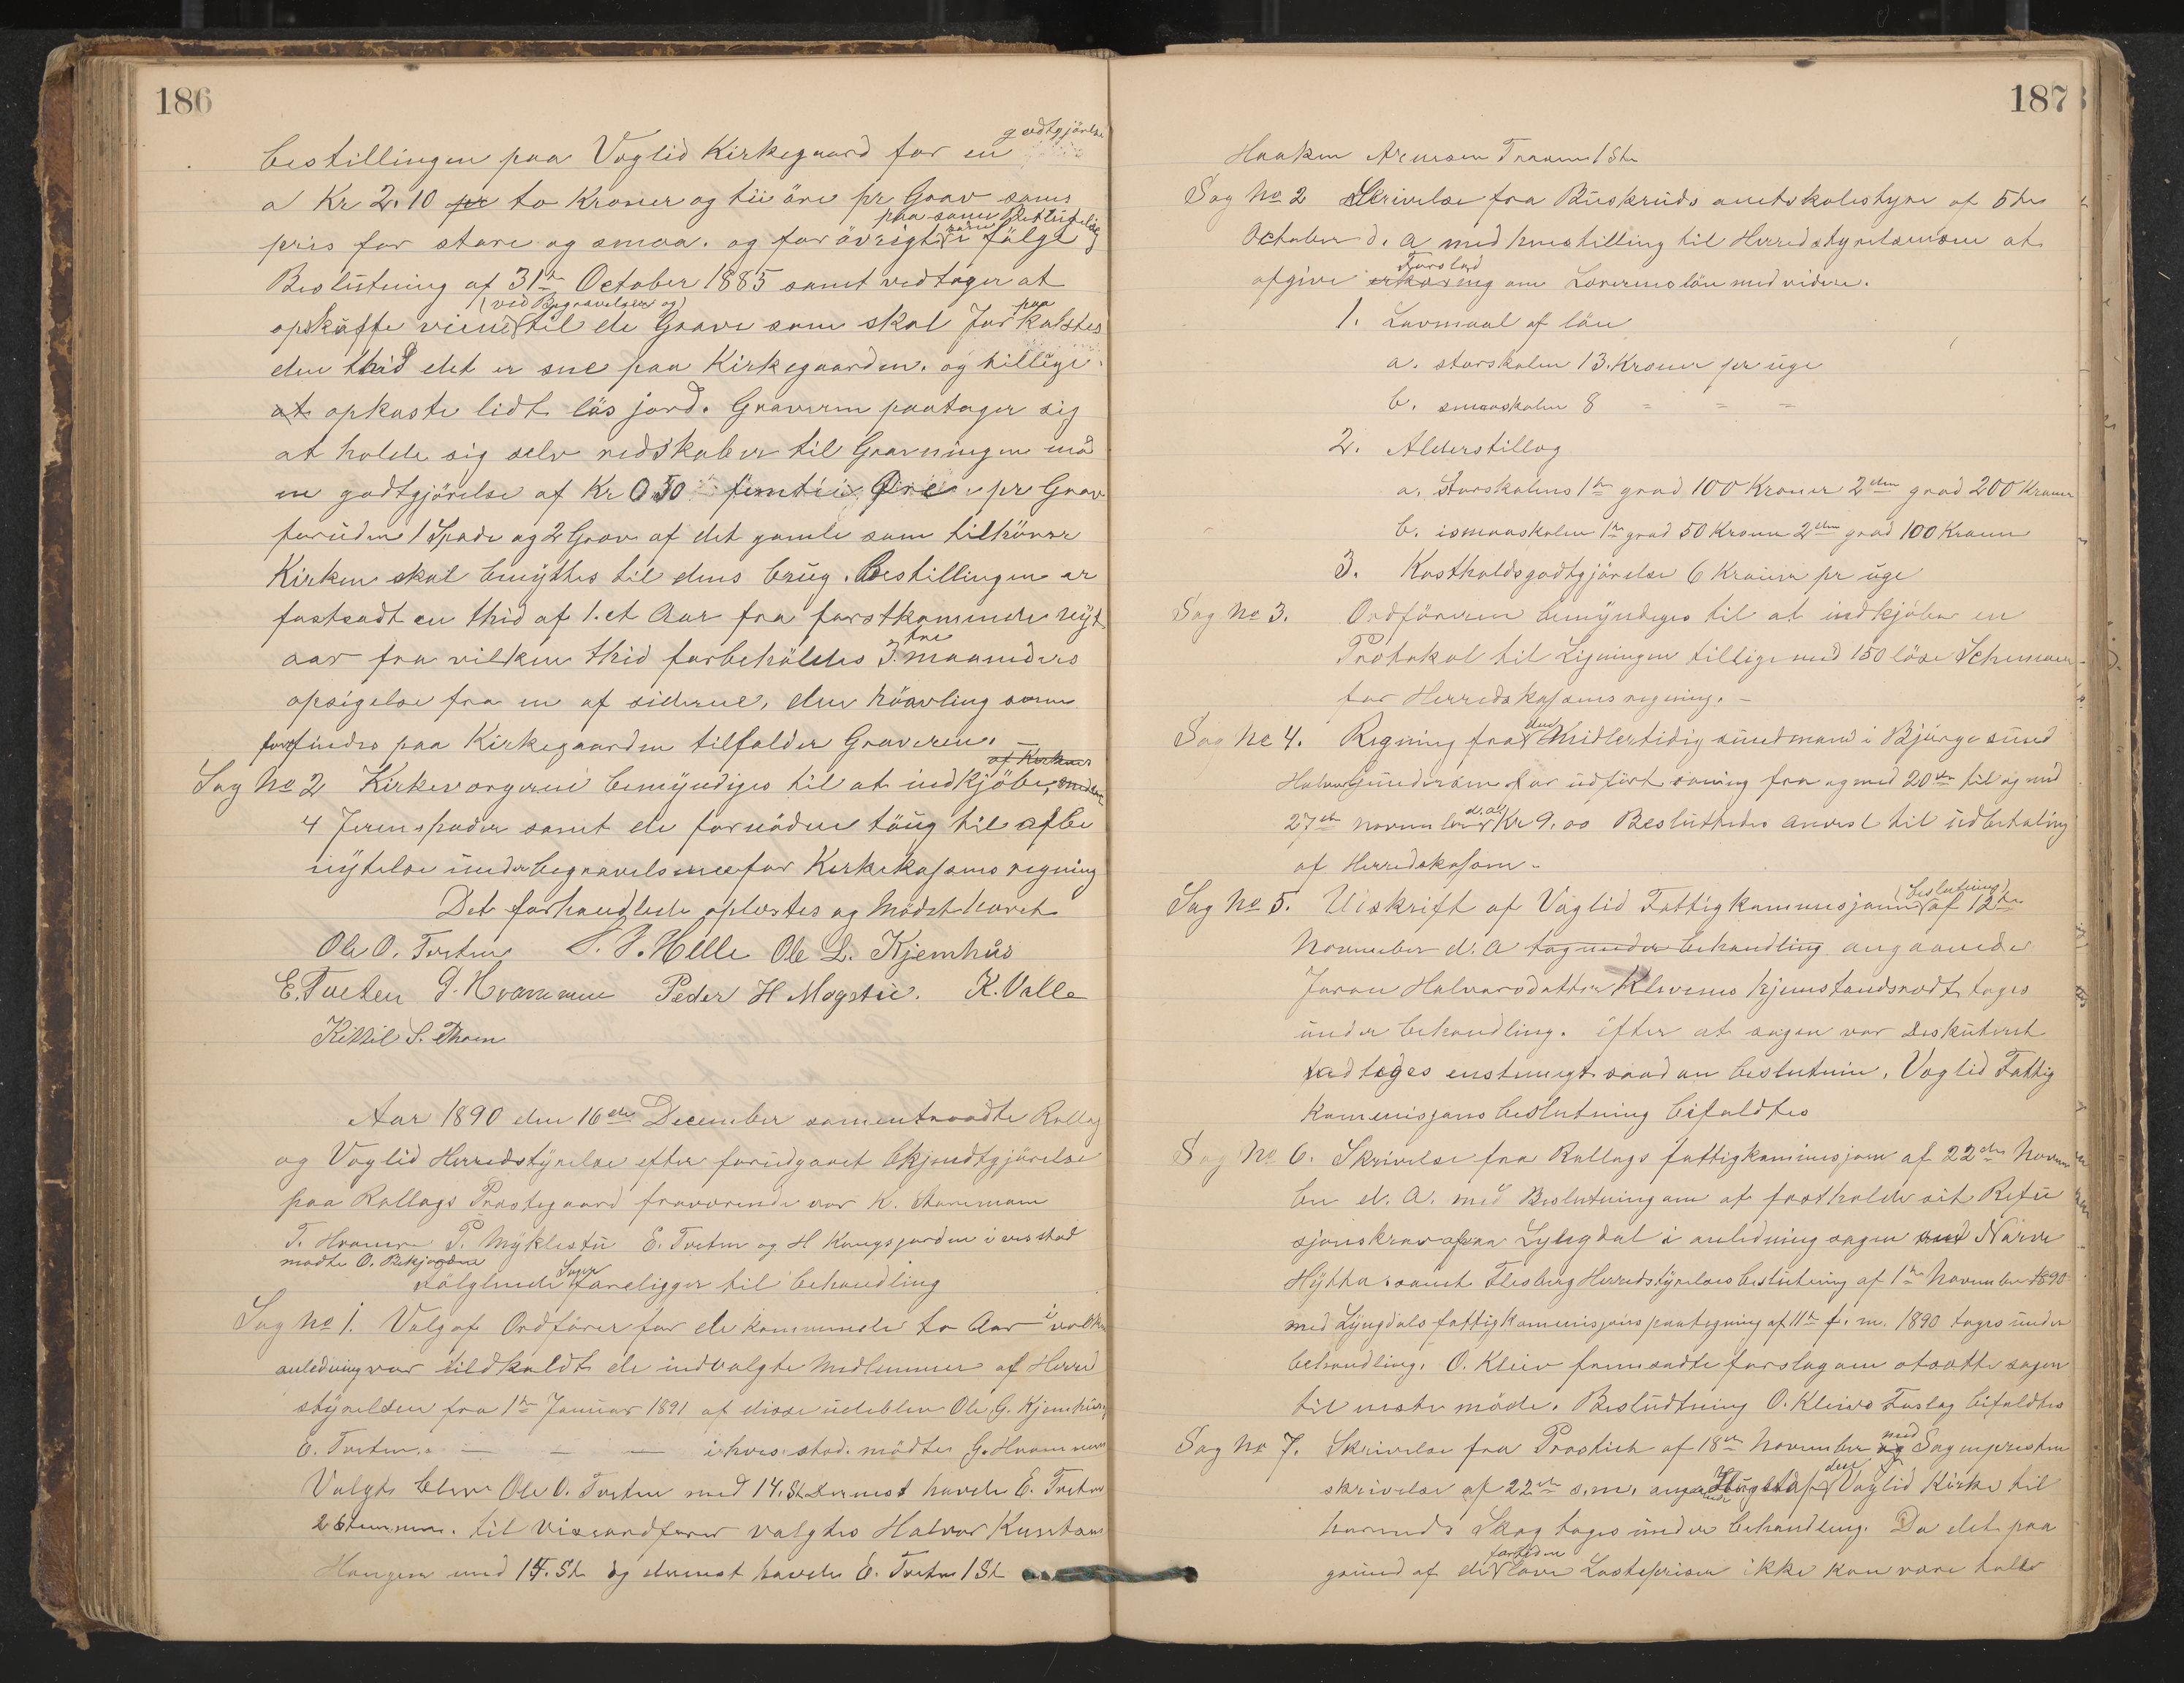 186
godtgjörelse
bestillingen paa Vøglid Kirkegaard for en
a Kr 2.10 pr to Kroner og tii öre pr Grav sams
paa samme Betingelser
pris for store og smaa. og for övrigt i fölge
Beslutning af 31te October 1885 samt vedtager at
(ved Begravelsen og) paa
opskuffe veiene til de Grave som skal kastes
den thid det er sne paa Kirkegaarden. og tillige
at opkaste lidt lös jord. Graveren paatager sig
at holde sig selv redskaber til Gravningen mod
en godtgjörelse af Kr 0.50 femtii Öre pr Grav
foruden 1 Spade og 2 Grev af det gamle som tilhörer
Kirken skal benyttes til dens brug. Bestillingen er
fastsadt en thid af 1. et Aar fra førstkomende nyt
aar fra vilken thid forbeholdes 3. tre maaneders
opsigelse fra en af siderne, den håvling som
forefindes paa Kirkegaarden tilfalder Graveren.
af Kirken
Sag No 2 Kirkevergerne bemyndiges til at indkjöbe
4 Jernspader samt de fornödne töug til afbe
nytelse under begravelserne for Kirkekassens regning
Det forhandlede oplæstes og Mödet hævet
Ole O. Tveten S. P. Helle Ole L. Kjemhus
E. Tveten G. Hvammen Peder H Mogstu. K. Valle
Kittil S. Thoen
Aar 1890 den 16de December samentraadte Rollag
og Vøglid Herredstyrelse efter forudgaaet bkjendtgjörelse
paa Rollags Præstegaard fraværende var K.
T. Hvamen P. Myklestu E. Tveten og H Kongsjorden i vis sted
mødte O. Bekjorden
fölglende Sager foreligger til behandling
Sag No 1. Valg af Ordförer for de kommende to Aar i vilken
anledning var tildkaldt de indvalgte Medlemmer af Herred
styrelsen fra 1ste Januar 1891 af disse udeblev Ole G. Kjemhus
E. Tveten. — — — i hvis sted. mödte G. Hvammen
Valgt blev Ole O. Tveten med 14. St. dernest havde E. Tveten
2 Stemmer. til Viseordförer valgtes Halvor Knutsen
Haugen med 15. St. og dernest havde E. Tveten 1 St
187
Haaken Aresen Traaen 1 St.
Sag No 2 Skrivelse fra Buskruds amtskolestyre af 5te
October d. A med henstilling til Herredstyrelserne at
Forslag
afgive erkæreng om Lærernes lön med videre.
1. Lavmaal af lön
a. storskolen 13. Kroner pr uge
b. smaaskolen 8 = = =
2. Alderstillæg
a. Storskolens 1ste grad 100 Kroner 2den grad 200 Kroner
b. ismaaskolen 1ste grad 50 Kroner 2den grad 100 Kroner
3. Kostholdsgodtgjörelse 6 Kroner pr uge
Sag No 3. Ordföreren bemyndiges til at indkjöbe en
Protokol til Ligningen tillige med 150 löse Schemaer
for Herredskassens regning. –
Sag No 4. Regning fra den Midlertidig sundmand i Bjørge sund
Halvor Gundersen for udfört soning fra og med 20de til og med
27de november d. A. Kr 9.00 Besluttedes anvist til udbetaling
af Herredskassen –
Sag No 5. Udskrift af Vøglid Fattigkommisjons (beslutning) af 12te
November d. A tag under behandling angaaende
Joran Halvorsdatter Klevens hjemstandsrædt tages
under behandling. efter at sagen var Deskuteret
vedtoges enstemigt saadan beslutnin, Vøglid Fattig
kommisjons beslutning bifaldtes
Sag No 6. Skrivelse fra Rollags fattigkommisjon af 22de Novem
ber d. A. med Beslutning om at fastholde sit Refu
sjonskrav paa Lyngdal i anledning sagen med Narve
Hytta samt Flesberg Herredstyrelses beslutning af 1ste November 1890
med Lyngdals fattigkommisjons paategning af 11te f. m. 1890 tages under
behandling. O. Kleiv fremsadte forslag om at sætte sagen
til neste möde. Besludtning O. Kleivs Forslag bifaldtes
Sag No 7. Skrivelse fra Prostien af 18de November med og Sognepresten
skrivelse af 22de s. m. angaaende Hugst af den Vøglid Kirke til
hørende Skog tages under behandling. Da det paa
fortiden
grund af de lave Lasteprisen ikke kan være tale